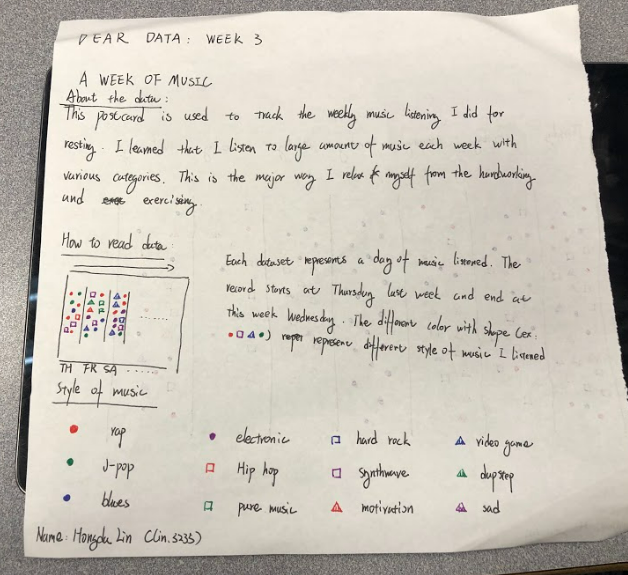 DEAR DATA: WEEK 3
A WEEK OF MUSIC
About the data:
This postcard is used to track the weekly music listening I did for
resting. I learned that I listen to large amount of music each week with
various categories. This is the major way I relax myself from the hardworking
and exercising.
How to read data:
Each dataset represents a day of music listened. The
record starts at Thursday last week and end at
this week Wednesday. The different color with shape (ex.
) represent different style of music I listened
TH FR SA ......
Style of music
rap electronic hard rock video game
J-pop Hip hop synthwave dupstep
blues pure music motivation sad
Name: Hongda Lin (lin.3235)